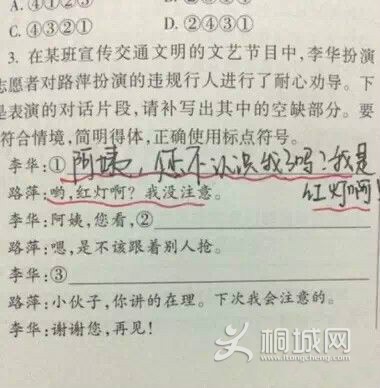 A.④①②③
C.④③②①
D.②④③①
3. 在某班宣传交通文明的文艺节目中,李华扮演
志愿者对路萍扮演的违规行人进行了耐心劝导。下
是表演的对话片段,请补写出其中的空缺部分。要
符合情境,简明得体,正确使用标点符号。
李华:①阿姨,您不认识我了吗?我是
红灯啊!
路萍:哟,红灯啊?我没注意。
李华:阿姨,您看,②
路萍:嗯,是不该跟着别人抢。
李华:③
路萍:小伙子,你讲的在理。下次我会注意的。
李华:谢谢您,再见!
桐城网
www.itongcheng.com